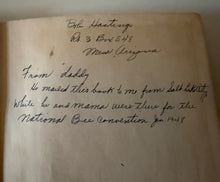 Bob Hastings
Rt. 3 Box 548
Mesa Arizona
From "daddy
He mailed this book to me from Salt Lake City
While he and mama were there for the
National Bee Convention Jan 1948